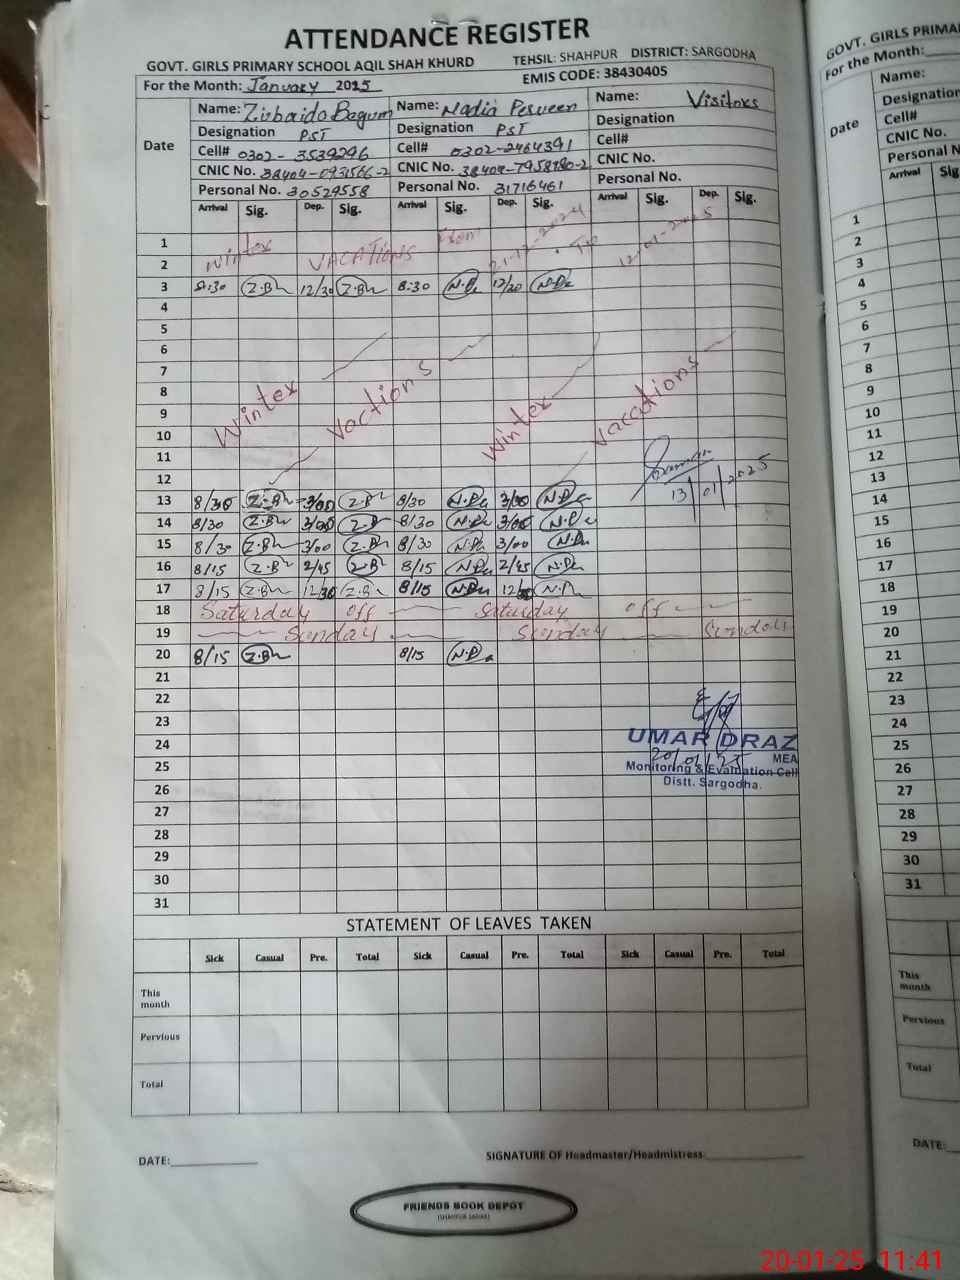 ATTENDANCE REGISTER
GOVT. GIRLS PRIMARY SCHOOL AQIL SHAH KHURD TEHSIL: SHAHPUR DISTRICT: SARGODHA
For the Month: January 2025 EMIS CODE: 38430405
Date
Name: Zubaida Bagum Name: Nadia Perveen Name: Visitors
Designation PST Designation PST Designation
Cell# 0302-3539296 Cell# 0302-2464391 Cell#
CNIC No. CNIC No. CNIC No.
Personal No. 30529558 Personal No. 31716461 Personal No.
Arrival Sig. Dep. Sig. Arrival Sig. Dep. Sig. Arrival Sig. Dep. Sig.
1
2 Winter VACATIONS From 21-12-2024 To 12-01-2025
3 8:30 Z.B 12/30 Z.B 8:30 N.P 12/30 N.P
4
5
6
7
8
9 Winter Vactions Winter Vaccations
10
11
12
13 8/30 Z.B 3/00 Z.B 8/30 N.P 3/00 N.P 13/01/2025
14 8/30 Z.B 3/00 Z.B 8/30 N.P 3/00 N.P
15 8/30 Z.B 3/00 Z.B 8/30 N.P 3/00 N.P
16 8/15 Z.B 2/45 Z.B 8/15 N.P 2/45 N.P
17 8/15 Z.B 12/30 Z.B 8/15 N.P 12/ N.P
18 Saturday off Saturday off
19 Sunday Sunday Sunday
20 8/15 Z.B 8/15 N.P
21
22
23
24 UMAR DRAZ
20/01/25 MEA
25 Monitoring & Evaluation Cell
Distt. Sargodha.
26
27
28
29
30
31
STATEMENT OF LEAVES TAKEN
Sick Casual Pre. Total Sick Casual Pre. Total Sick Casual Pre. Total
This month
Pervious
Total
DATE: SIGNATURE OF Headmaster/Headmistress
FRIENDS BOOK DEPOT
(SHAHPUR SADAR)
GOVT. GIRLS PRIMA
For the Month:
Date
Name:
Designation
Cell#
CNIC No.
Personal N
Arrival Sig
1
2
3
4
5
6
7
8
9
10
11
12
13
14
15
16
17
18
19
20
21
22
23
24
25
26
27
28
29
30
31
This month
Pervious
Total
DATE:
20-01-25 11:41